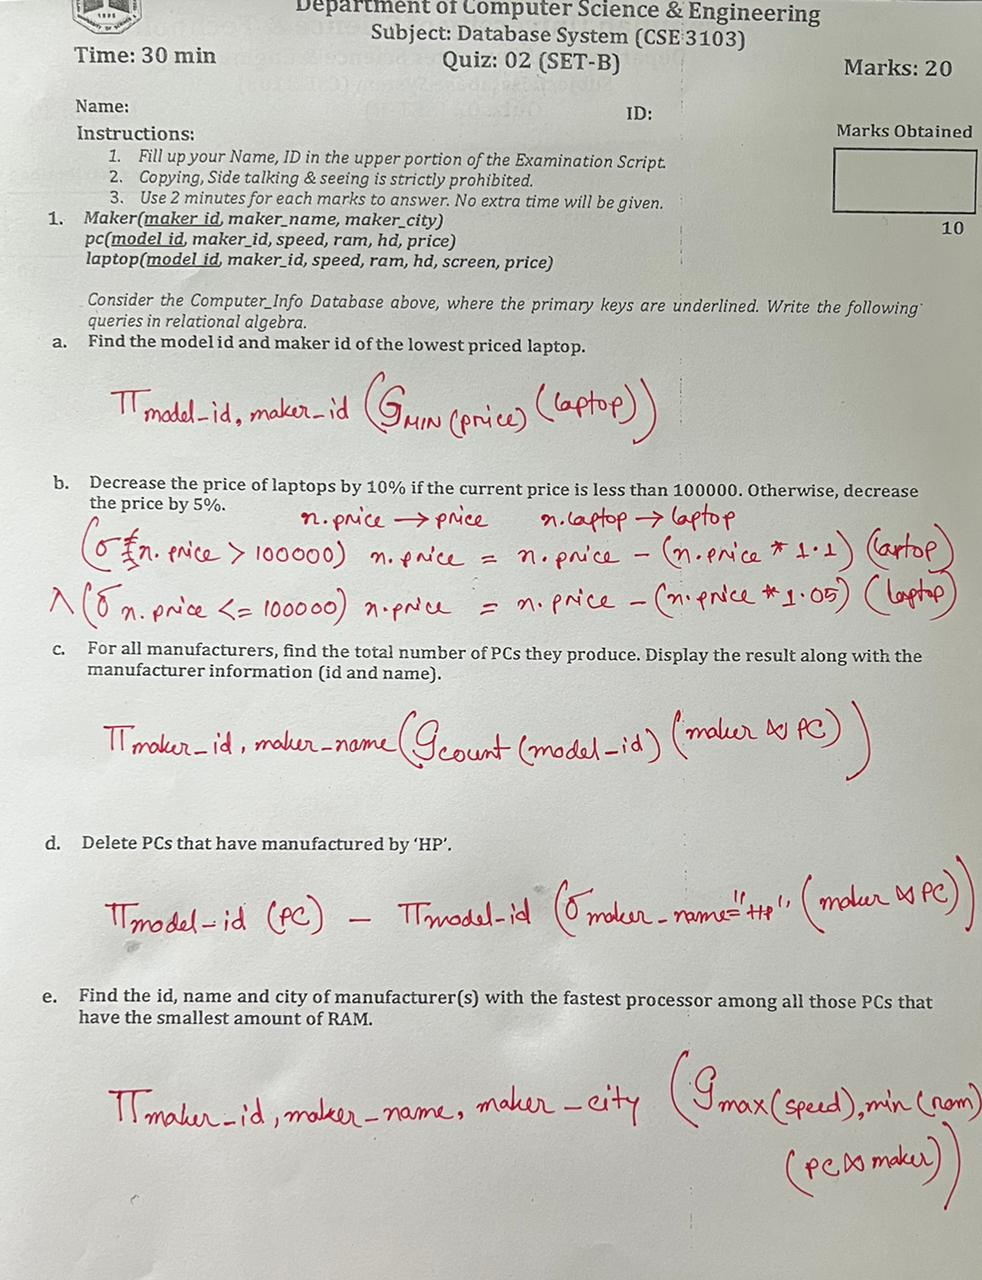 Department of Computer Science & Engineering
Subject: Database System (CSE 3103)
Time: 30 min
Quiz: 02 (SET-B)
Marks: 20
Name:
ID:
Marks Obtained
Instructions:
1. Fill up your Name, ID in the upper portion of the Examination Script.
2. Copying, Side talking & seeing is strictly prohibited.
3. Use 2 minutes for each marks to answer. No extra time will be given.
1. Maker(maker id, maker_name, maker_city)
10
pc(model id, maker_id, speed, ram, hd, price)
laptop(model id, maker_id, speed, ram, hd, screen, price)
Consider the Computer_Info Database above, where the primary keys are underlined. Write the following
queries in relational algebra.
a. Find the model id and maker id of the lowest priced laptop.
π model_id, maker_id (G MIN (price) (laptop))
b. Decrease the price of laptops by 10% if the current price is less than 100000. Otherwise, decrease
the price by 5%.
n.price → price n.laptop → laptop
(σ n.price > 100000) n.price = n.price - (n.price * 1.1) (laptop)
∧ (σ n.price <= 100000) n.price = n.price - (n.price * 1.05) (laptop)
c. For all manufacturers, find the total number of PCs they produce. Display the result along with the
manufacturer information (id and name).
π maker_id, maker_name (G count (model_id) (maker ⋈ PC))
d. Delete PCs that have manufactured by ‘HP’.
π model_id (PC) - π model_id (σ maker_name="HP" (maker ⋈ PC))
e. Find the id, name and city of manufacturer(s) with the fastest processor among all those PCs that
have the smallest amount of RAM.
π maker_id, maker_name, maker_city (G max(speed), min(ram)
(PC ⋈ maker))